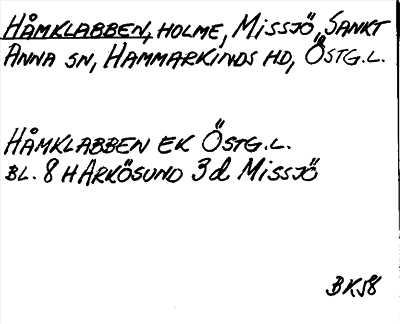 HÅMKLABBEN, HOLME, MISSJÖ, SANKT
ANNA SN, HAMMARKINDS HD, ÖSTG.L.
HÅMKLABBEN EK ÖSTG.L.
BL. 8 H ARKÖSUND 3d MISSJÖ
BK58